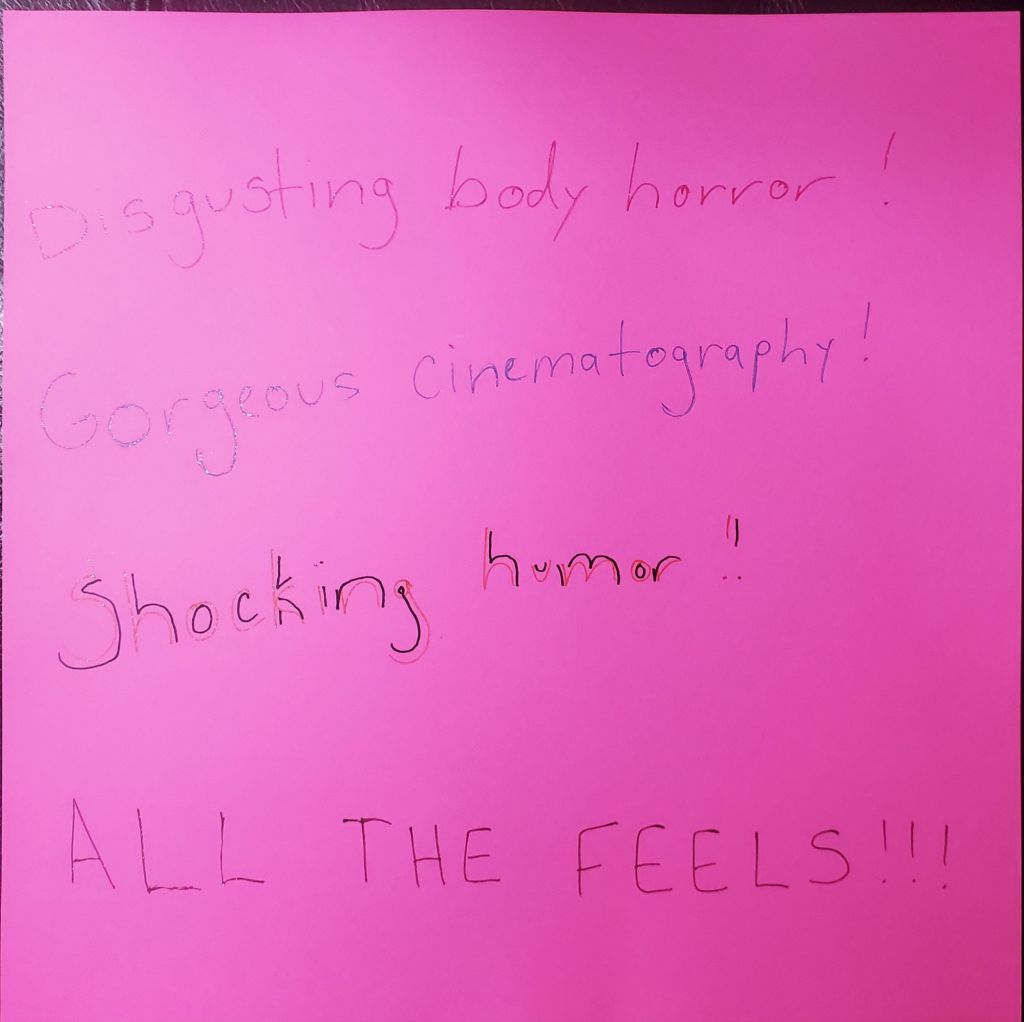 Disgusting body horror!
Gorgeous cinematography!
Shocking humor!!
ALL THE FEELS!!!